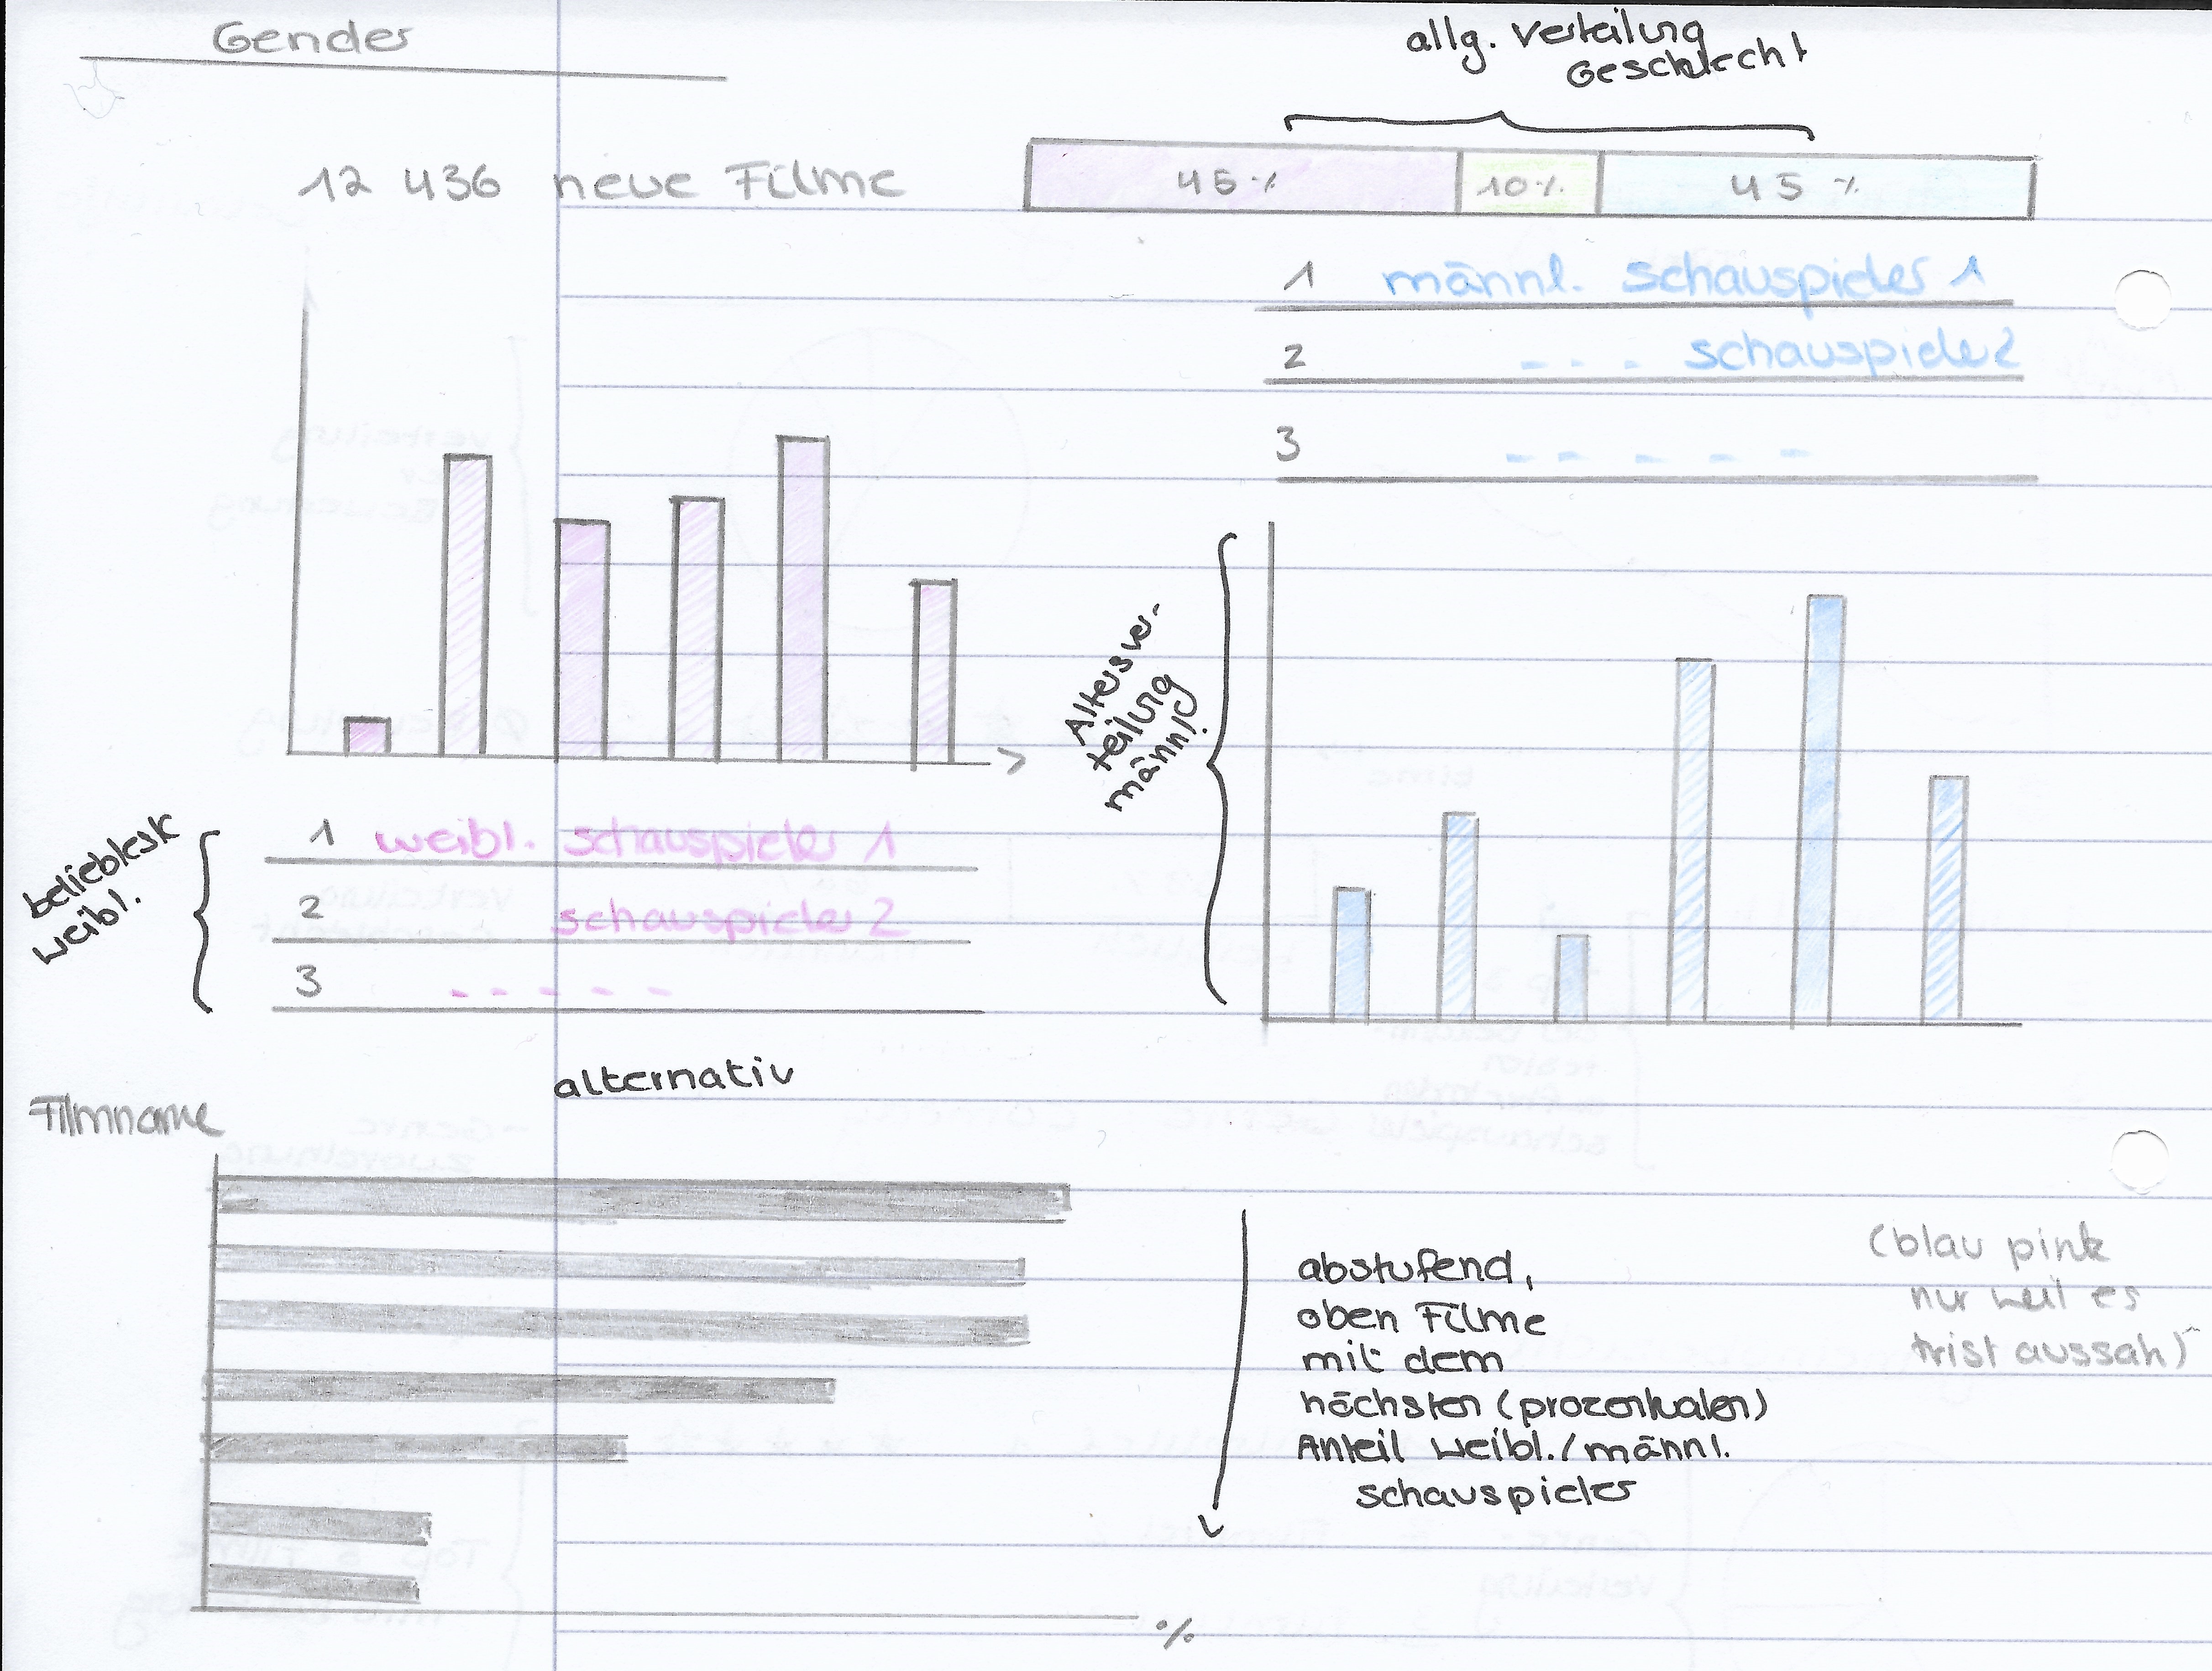 Gender
allg. Verteilung
Geschlecht
12 436 neue Filme
45% 10% 45%
1 männl. Schauspieler 1
2 - - - Schauspieler 2
3 - - - - -
Altersver-
teilung
männl.
beliebteste
weibl.
1 weibl. Schauspieler 1
2 Schauspieler 2
3 - - - - -
alternativ
Filmname
abstufend,
oben Filme
mit dem
höchsten (prozentualen)
Anteil weibl./männl.
Schauspieler
(blau pink
nur weil es
trist aussah)
%